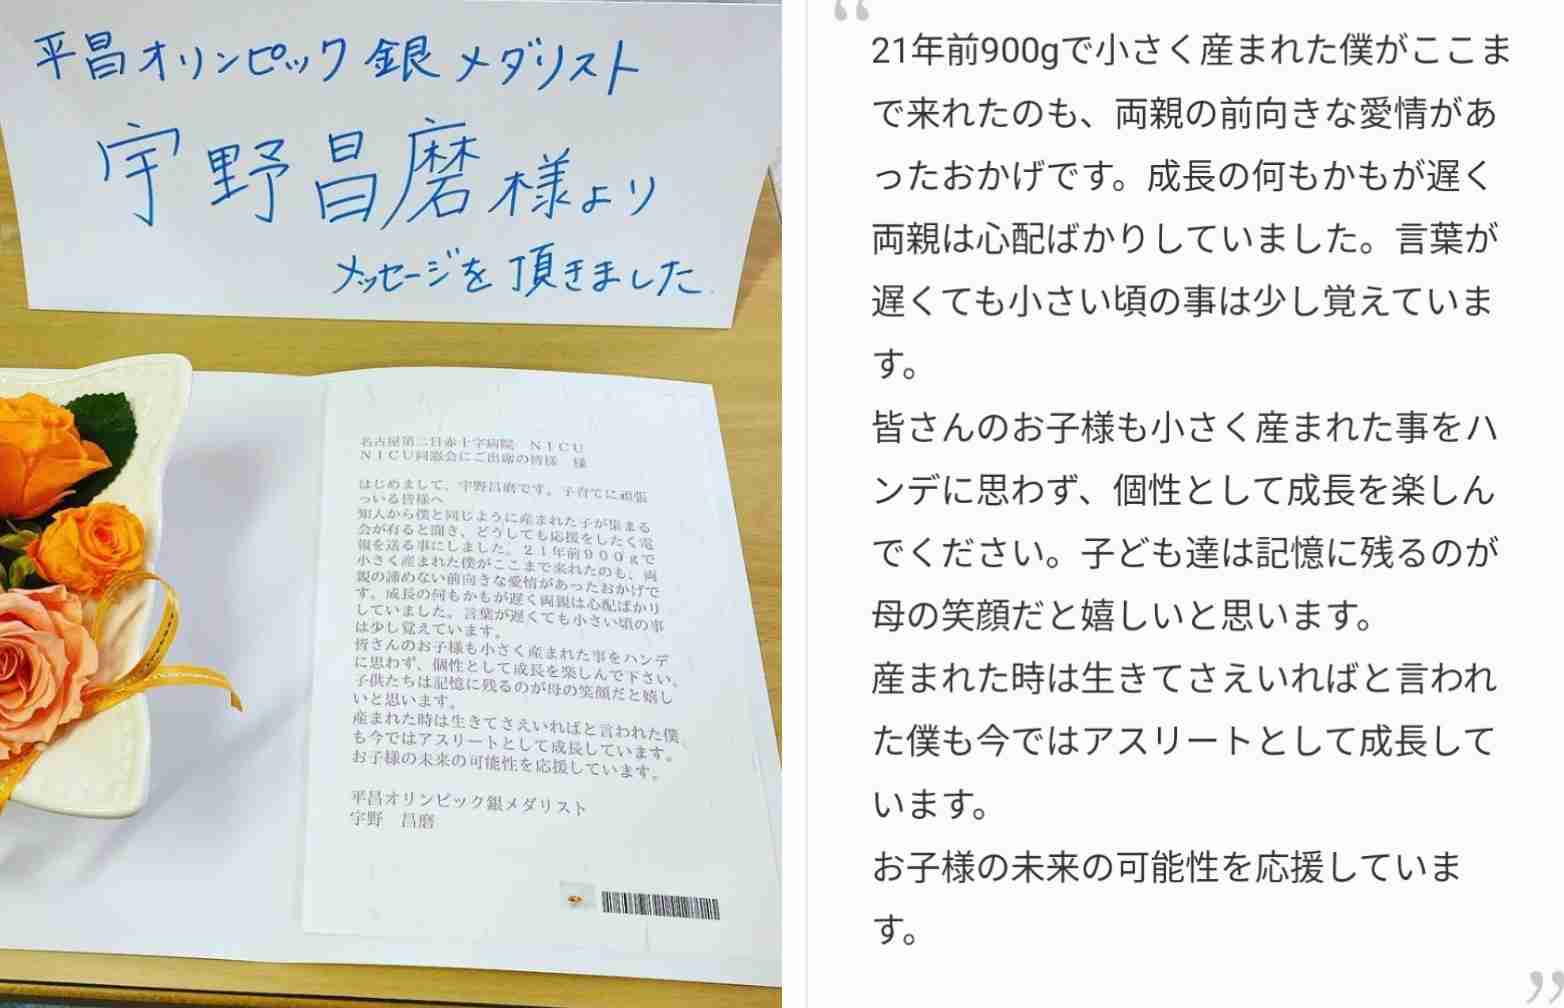 平昌オリンピック銀メダリスト
宇野昌磨様より
メッセージを頂きました.
名古屋第二日赤十字病院 NICU
NICU同窓会にご出席の皆様 様
はじめまして、宇野昌磨です。子育てに頑張
っいる皆様へ
知人から僕と同じように産まれた子が集まる
会が有ると聞き、どうしても応援をしたく電
報を送る事にしました。21年前900gで
小さく産まれた僕がここまで来れたのも、両
親の諦めない前向きな愛情があったおかげで
す。成長の何もかもが遅く両親は心配ばかり
していました。言葉が遅くても小さい頃の事
は少し覚えています。
皆さんのお子様も小さく産まれた事をハンデ
に思わず、個性として成長を楽しんで下さい。
子供たちは記憶に残るのが母の笑顔だと嬉し
いと思います。
産まれた時は生きてさえいればと言われた僕
も今ではアスリートとして成長しています。
お子様の未来の可能性を応援しています。
平昌オリンピック銀メダリスト
宇野 昌磨
“
21年前900gで小さく産まれた僕がここま
で来れたのも、両親の前向きな愛情があ
ったおかげです。成長の何もかもが遅く
両親は心配ばかりしていました。言葉が
遅くても小さい頃の事は少し覚えていま
す。
皆さんのお子様も小さく産まれた事をハ
ンデに思わず、個性として成長を楽しん
でください。子ども達は記憶に残るのが
母の笑顔だと嬉しいと思います。
産まれた時は生きてさえいればと言われ
た僕も今ではアスリートとして成長して
います。
お子様の未来の可能性を応援していま
す。
”